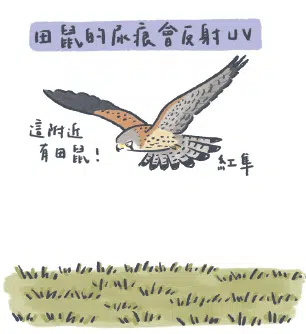 田鼠的尿痕會反射UV
這附近
有田鼠！
紅隼